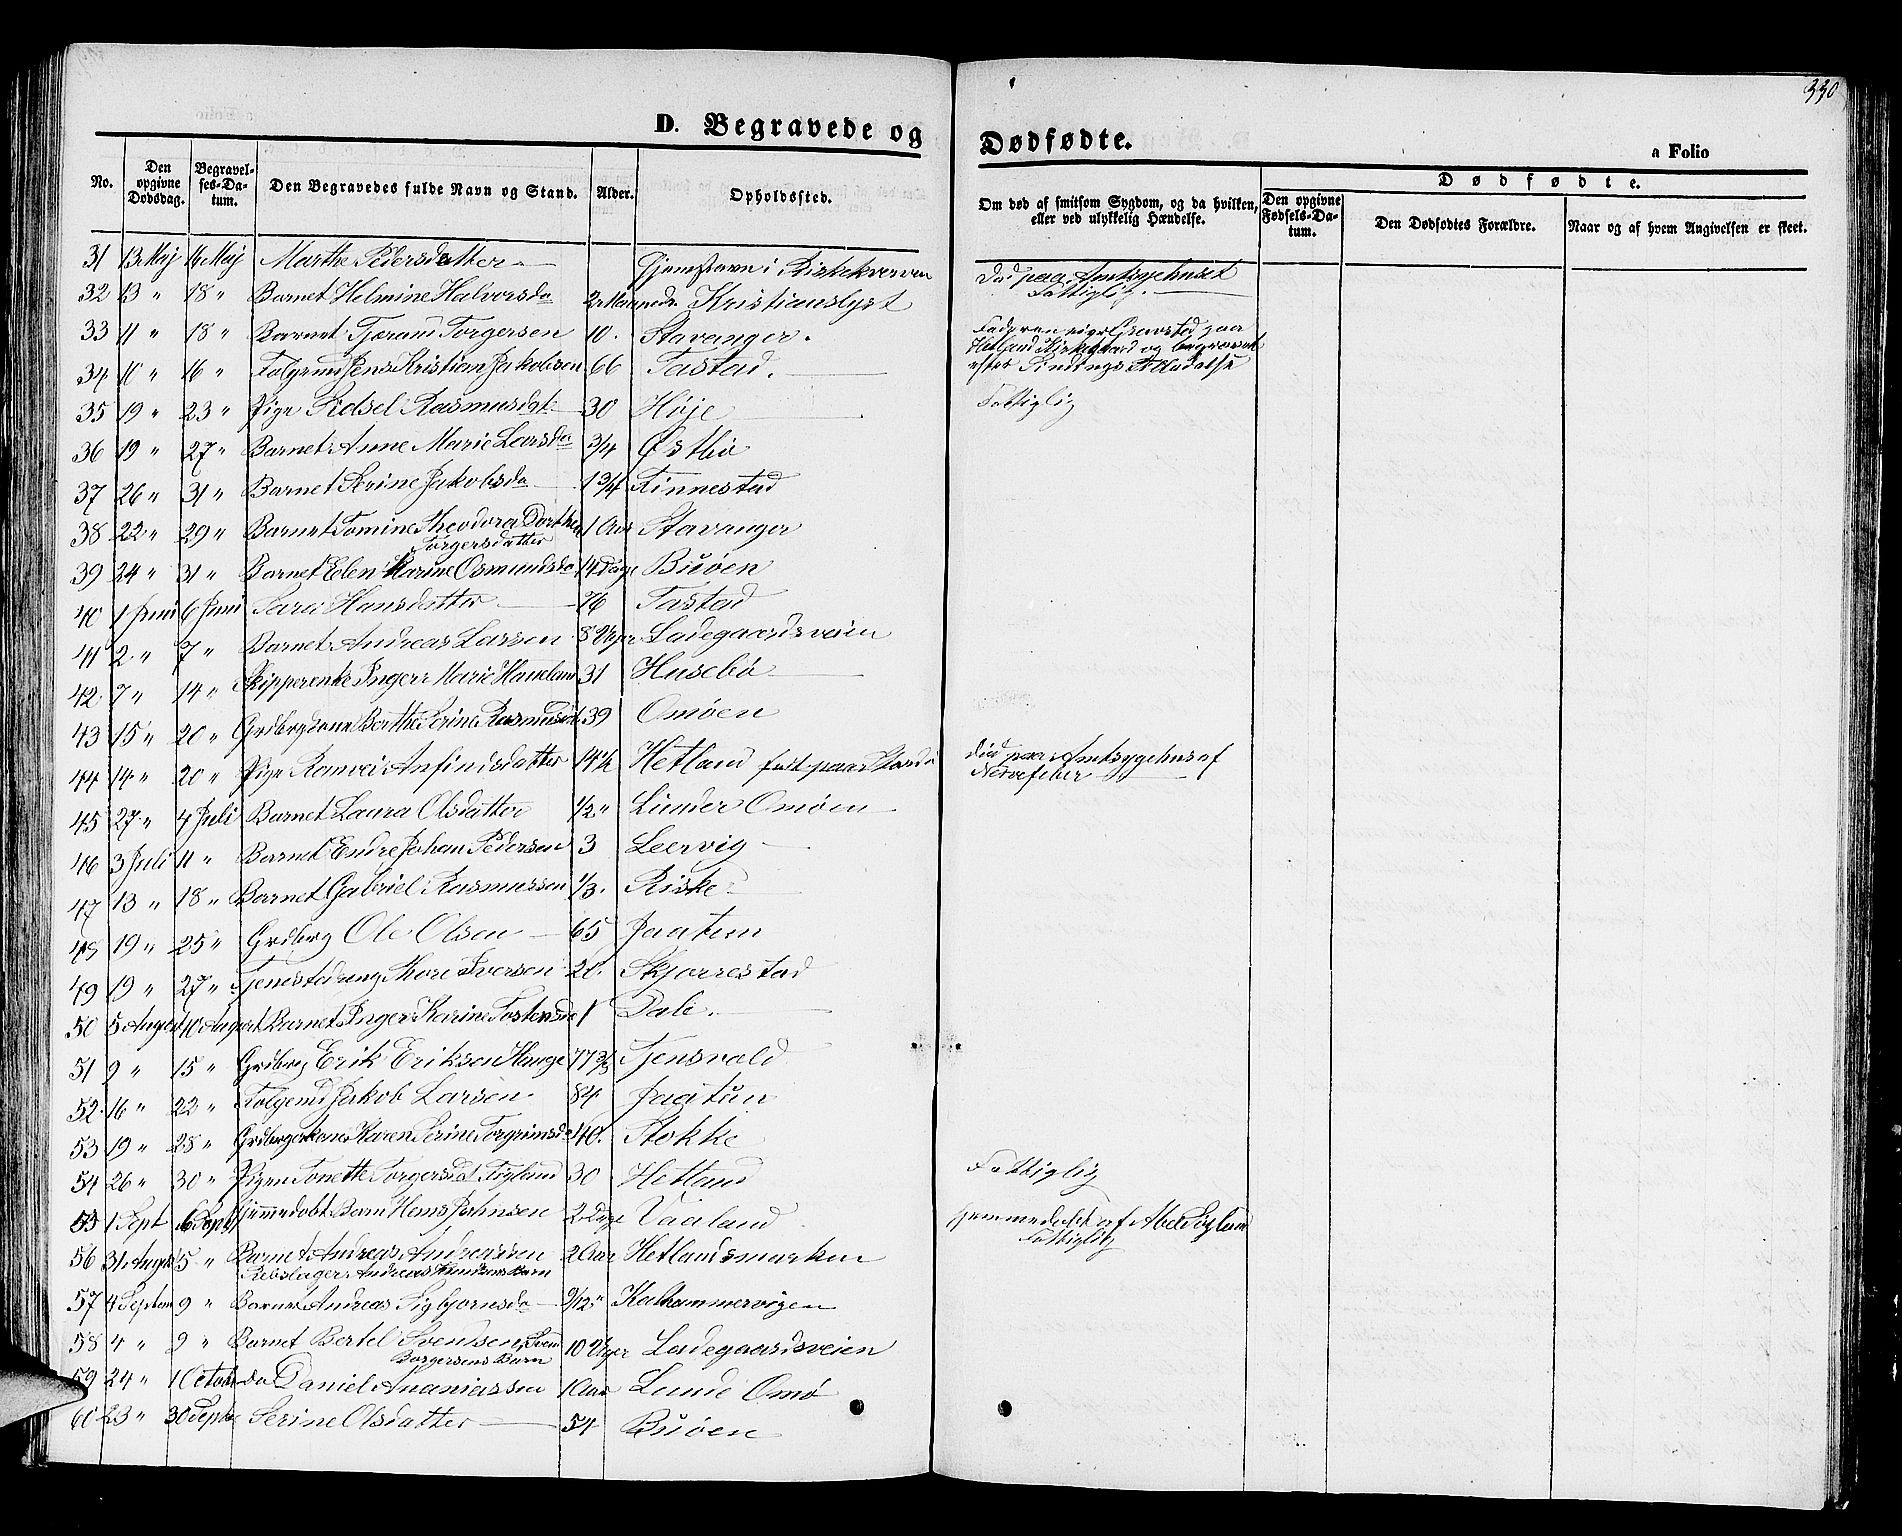 330
D. Begravede og Dødfødte.
a Folio
No. Den opgivne Dødsdag. Begravelses-Datum. Den Begravedes fulde Navn og Stand. Alder. Opholdssted. Om død af smitsom Sygdom, og da hvilken, eller ved ulykkelig Hændelse. Dødfødte. Den opgivne Fødsels-Datum. Den Dødfødtes Forældre. Naar og af hvem Angivelsen er skeet.
31 13 Maj 16 Maj Marthe Pedersdatter Hjemstavn i Død paa Amtsygehuset
Fattiglig.
32 13 " 18 " Barnet Helmine Halvorsda 2 Maaneder Kristianslyst
33 11 " 18 " Barnet Torgersen 10. Stavanger. Faderen eier Gravsted paa
Hetland Kirkegaard og begravet
efter Tilladelse
34 10 " 16 " Folgemd Jens Kristian Jakobsen 66 Tastad.
35 19 " 23 " Pige Rasmusdat 30 Høje Fattiglig
36 19 " 27 " Barnet Anne Marie Larsda 3/4 Østbø
37 26 " 31 " Barnet Serine Jakobsda 1 3/4 Finnestad
38 22 " 29 " Barnet Tomine Theodora Dorthea 1 Aar Stavanger
Torgersdatter
39 24 " 31 " Barnet Elen Karine Osmundsda 14 Dage Buøen
40 1 Juni 6 Juni Sara Hansdatter 76 Tastad
41 2 " 7 " Barnet Andreas Larsen 8 Uger Ladegaardsveien
42 7 " 14 " Skipperenke Inger Marie Haueland 31 Husebø
43 15 " 20 " Berthe Serine Rasmusdat 39 Omøen
44 14 " 20 " Pige Ranvei Anfindsdatter 14 1/2 Hetland død paa Amtsygehus af
Nervefeber
45 27 " 4 Juli Barnet Laura Olsdatter 1/2 " Lunder Omøen
46 3 Juli 11 " Barnet Endre Johan Pedersen 3 Leervig
47 13 " 18 " Barnet Gabriel Rasmussen 1/3. Riske
48 19 " 25 " Grdbrg Ole Olsen 65 Jaatun
49 19 " 27 " Tjenestedreng Thore Iversen 20. Skjørrestad
50 5 August 10 August Barnet Inger Karine Tostensda 1 Dale.
51 9 " 15 " Grdbrg Erik Eriksen Hauge 77 Tjensvold
52 16 " 22 " Folgemd Jakob Larsen 84 Jaatun
53 19 " 25 " Grdbrgerkone Karen Serine Torgrimsda 40. Stokke
54 26 " 30 " Pigen Tonette Torgersdat Fogland 30 Hetland Fattiglig
55 1 Sept 6 Sept Hjemmedøbt Barn Hans Johnsen 2 Dage Vaaland Hjemmedøbt af
Fattiglig
56 31 August 5 " Barnet Andreas Andreassen 2 Aar Hetlandsmarken
Rebslager Andreas Knudsens Barn
57 4 Septem 9 " Barnet Andreas Sigbjørnsda 9/12 " Kalhammervigen
58 4 " 9 " Barnet Bertel Svendsen, Svend 10 Uger Ladegaardsveien
Borgersens Barn
59 24 " 1 Octob do Daniel Ananiassen 1 Aar Lunde Omø
60 23 " 30 Septbr Serine Olsdatter 54 Buøen